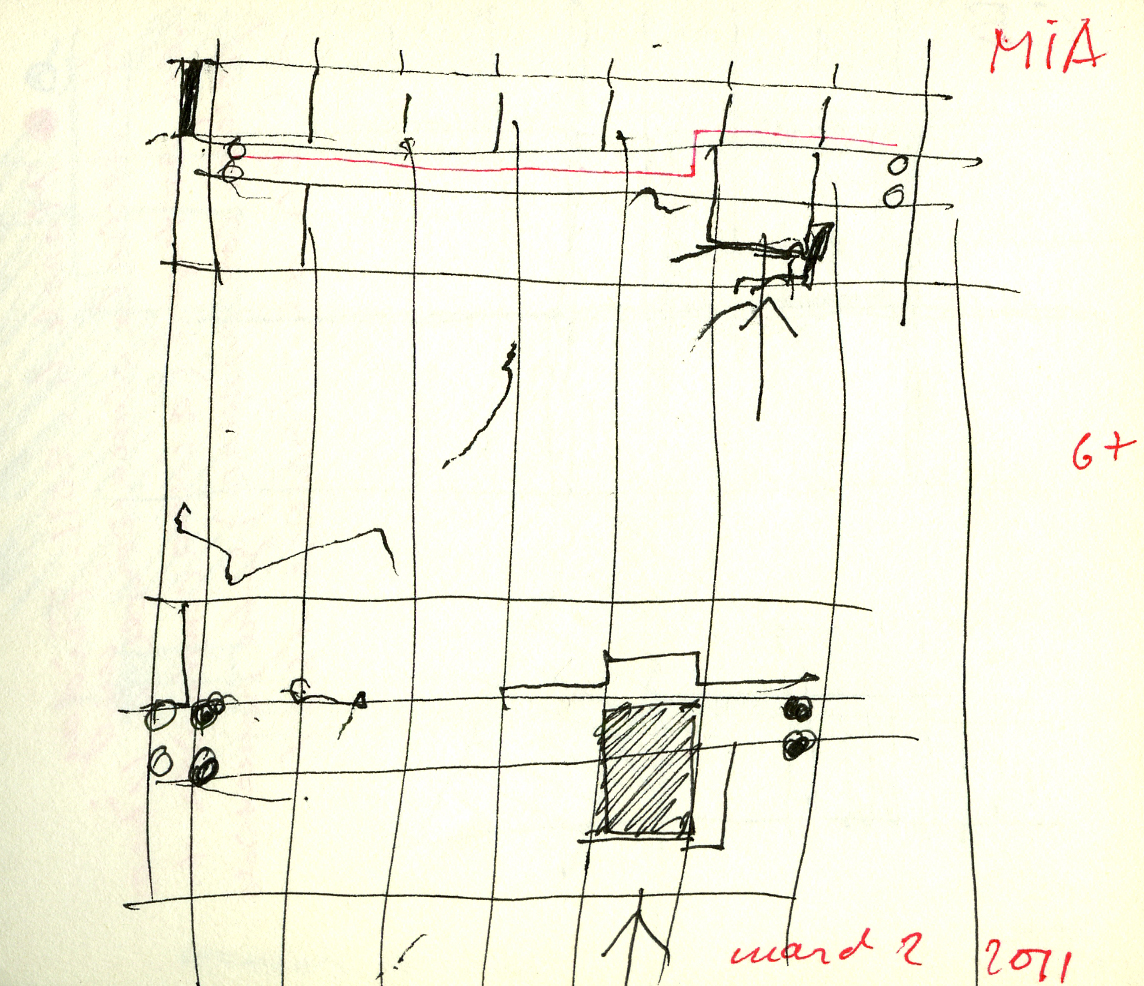 MiA
6+
2 2011